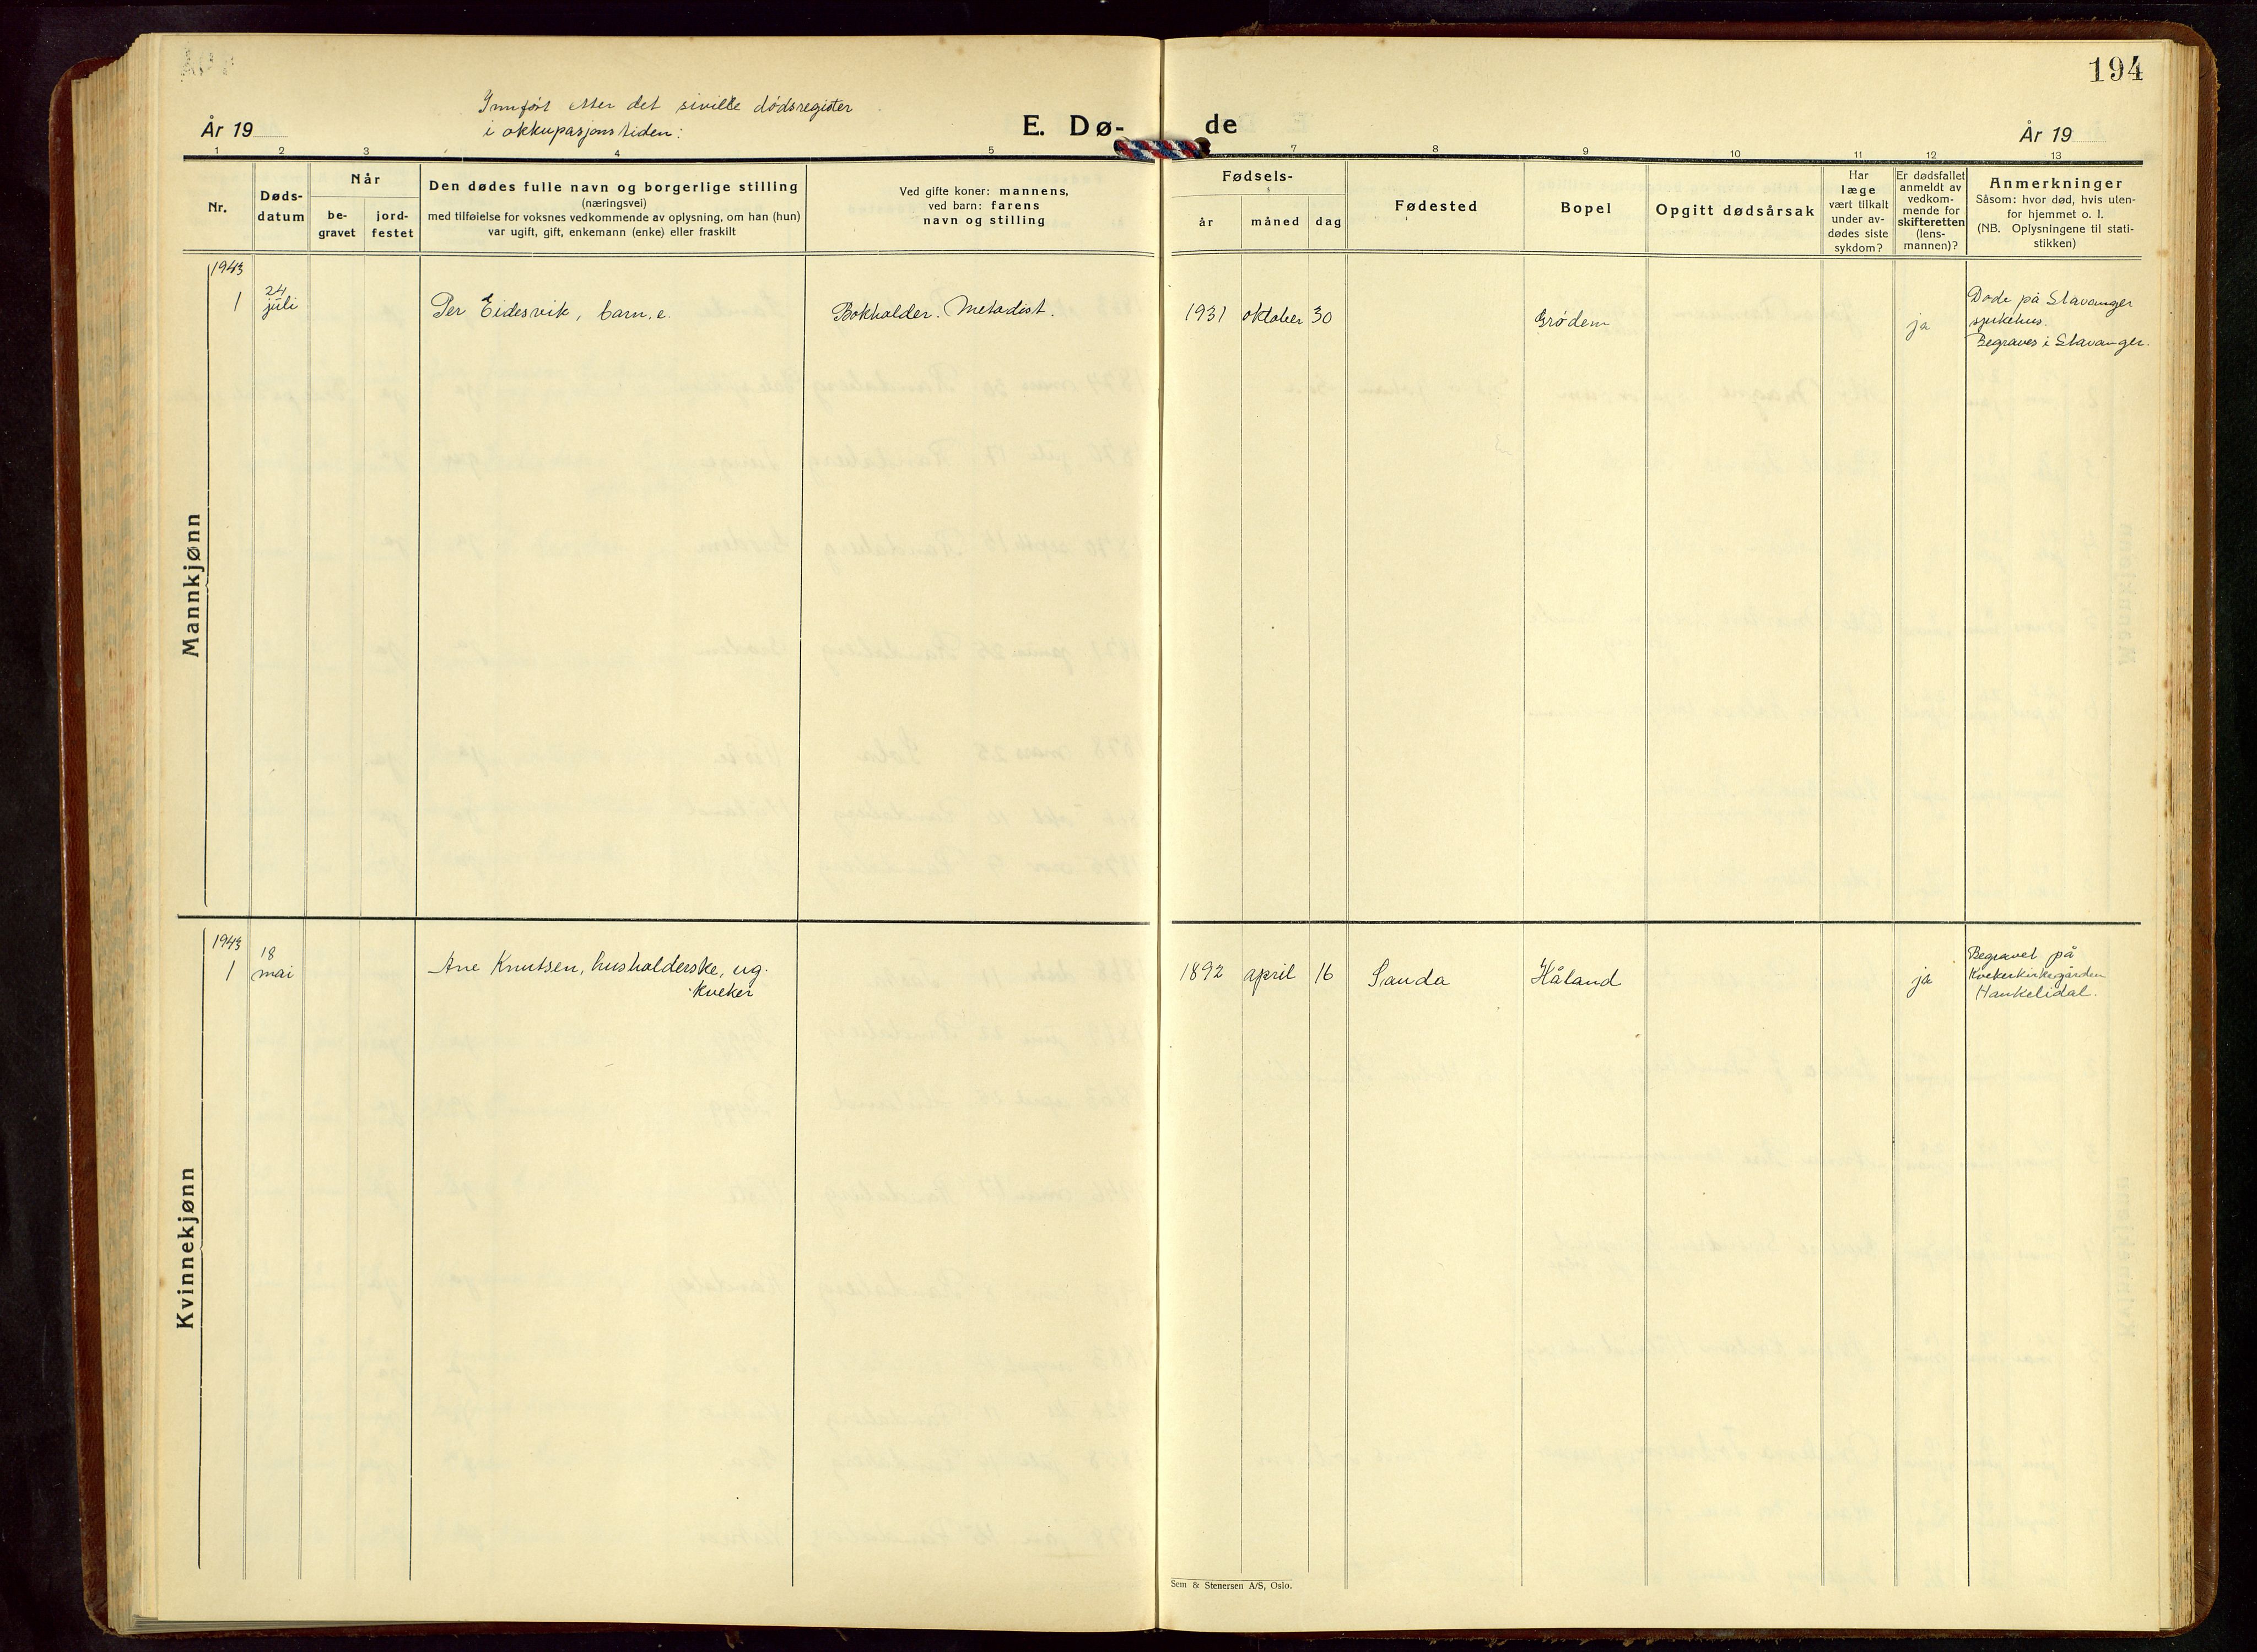 194
Innført etter det sivile dødsregister
i okkupasjonstiden:
År 19
E. Dø-
de
År 19
1 2 3 4 5 7 8 9 10 11 12 13
Nr.
Døds-
datum
Når
be-
gravet
jord-
festet
Den dødes fulle navn og borgerlige stilling
(næringsvei)
med tilføielse for voksnes vedkommende av oplysning, om han (hun)
var ugift, gift, enkemann (enke) eller fraskilt
Ved gifte koner: mannens,
ved barn: farens
navn og stilling
Fødsels-
år
måned
dag
Fødested
Bopel
Opgitt dødsårsak
Har
læge
vært tilkalt
under av-
dødes siste
sykdom?
Er dødsfallet
anmeldt av
vedkom-
mende for
skifteretten
(lens-
mannen)?
Anmerkninger
Såsom: hvor død, hvis uten-
for hjemmet o. l.
(NB. Oplysningene til stati-
stikken)
Mannkjønn
1943
1
24
juli
Per Eidesvik, barn, e.
Bokholder. Metodist.
1931 oktober 30
Grødem
ja
Døde på Stavanger
sjukehus.
Begraves i Stavanger.
Kvinnekjønn
1943
1
18
mai
Ane Knutsen, husholderske, ug.
Kveker
1892 april 16
Sauda
Håland
ja
Begravet på
Kvekerkirkegården
Haukelidal.
Sem & Stenersen A/S, Oslo.